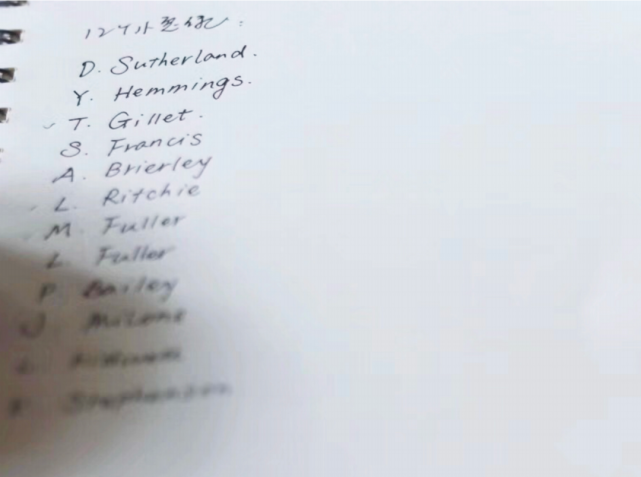 D. Sutherland.
Y. Hemmings.
T. Gillet.
S. Francis
A. Brierley
L. Ritchie
M. Fuller
L Fuller
P Bailey
J
Stephenson